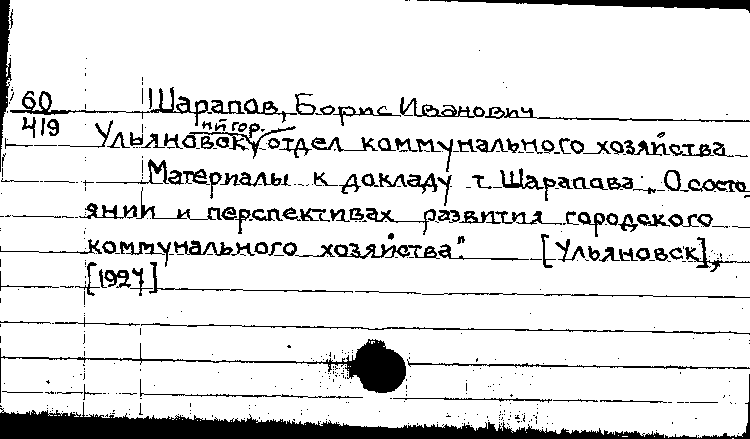 60
419
Шарапов, Борис Иванович
ий гор.
Ульяновск отдел коммунального хозяйства
Материалы к докладу т. Шарапова „О состо
янии и перспективах развития городского
коммунального хозяйства". [Ульяновск],
[1927]